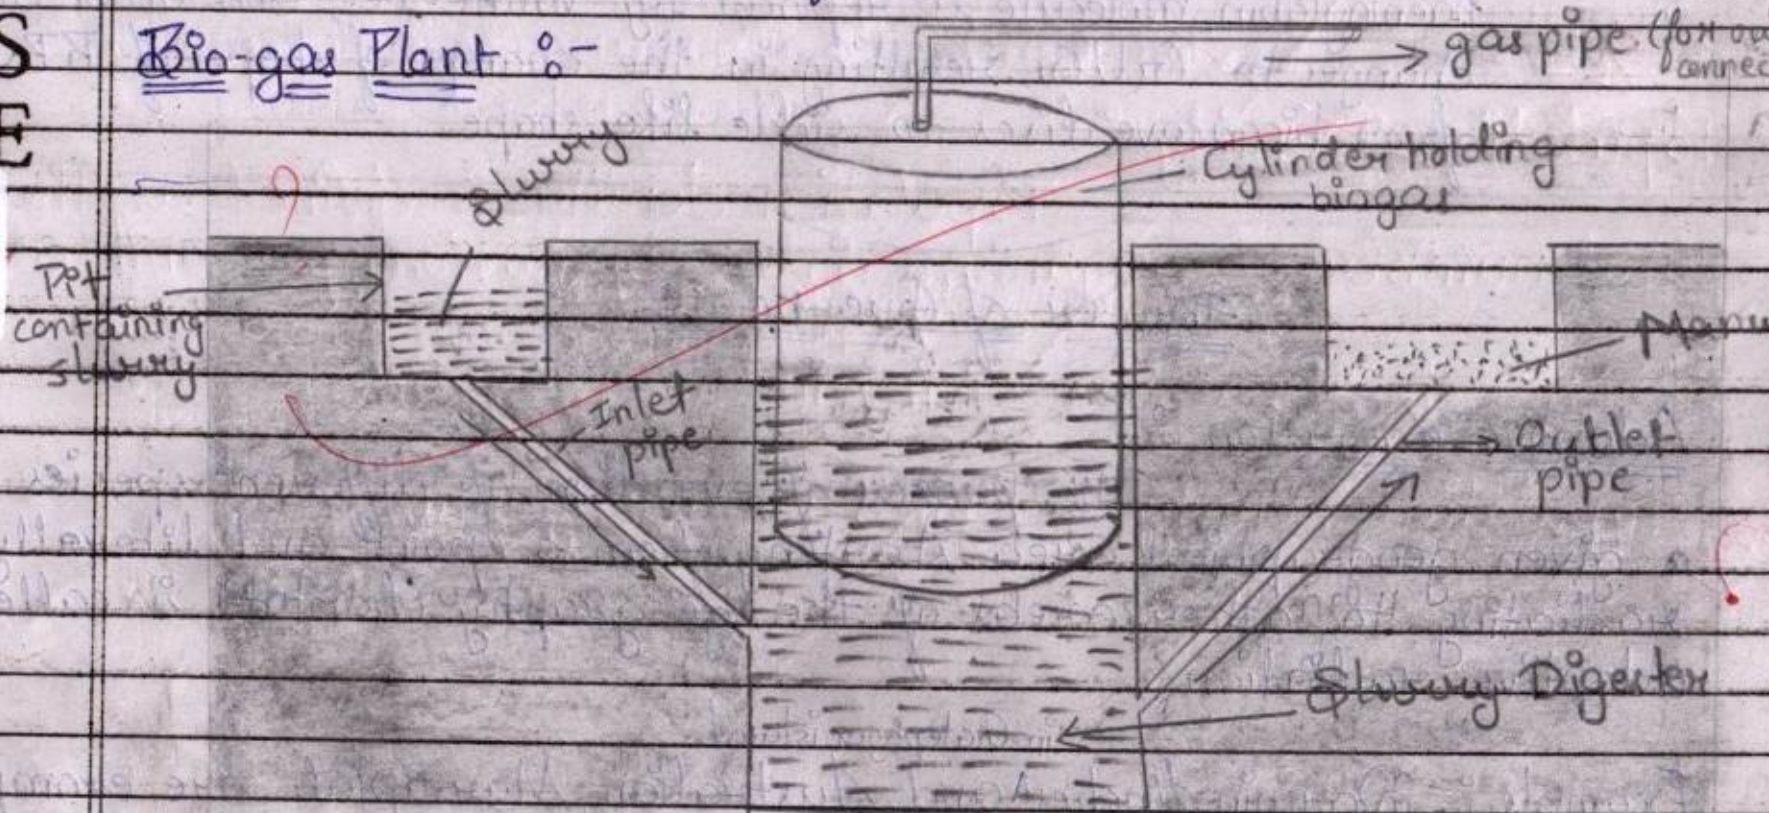 S
E
Bio-gas Plant :-
gas pipe (for
Slurry
Cylinder holding
biogas
Pit
containing
slurry
Inlet
pipe
Outlet
pipe
Slurry Digester